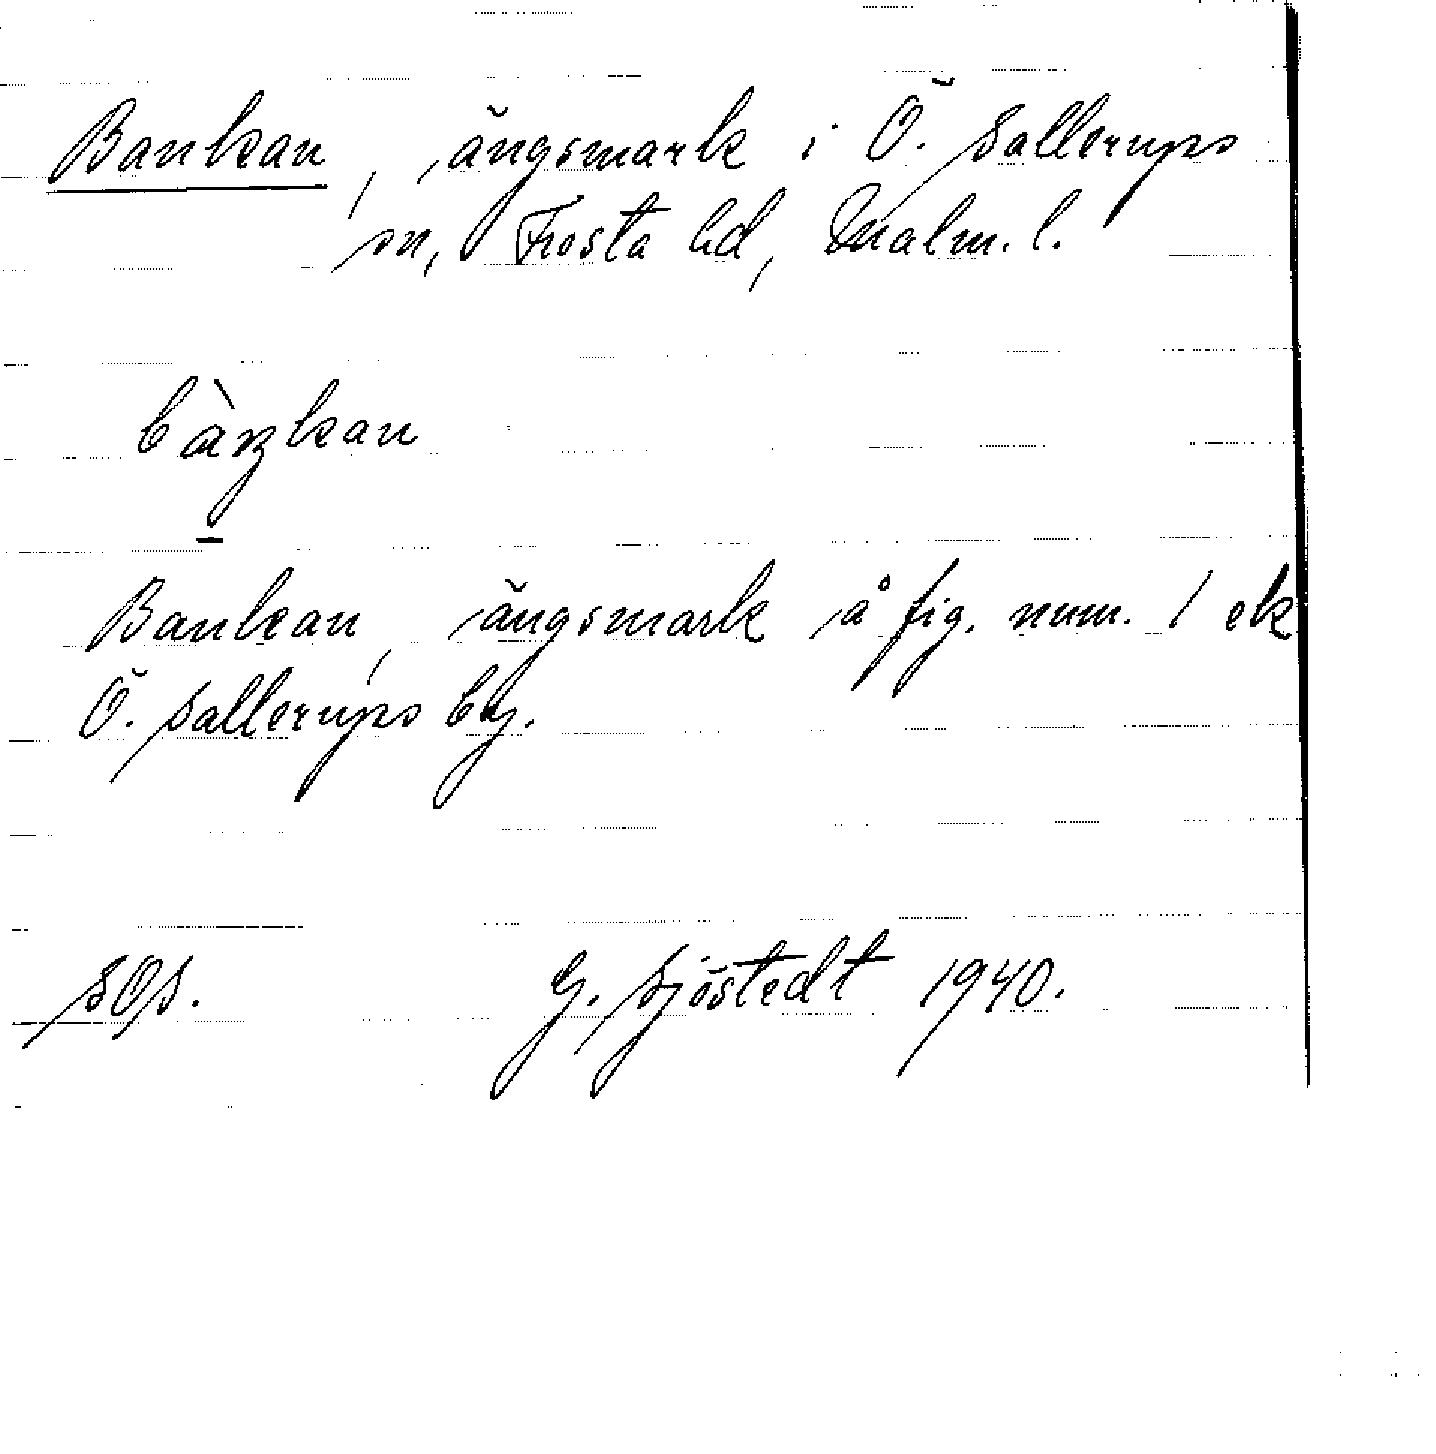 Bankan, ängsmark i Ö. Sallerups
sn, Frosta hd, Malm. l.
bàŋkan
Bankan, ängsmark å fig. num. 1 ek
Ö. Sallerups by.
SOS.
G. Sjöstedt 1940.